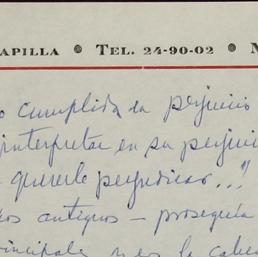 APILLA • TEL. 24-90-02 •
cumplida en perjuicio
interpretar en su perjuicio
quererle perjudicar..."
antiguos — proseguía